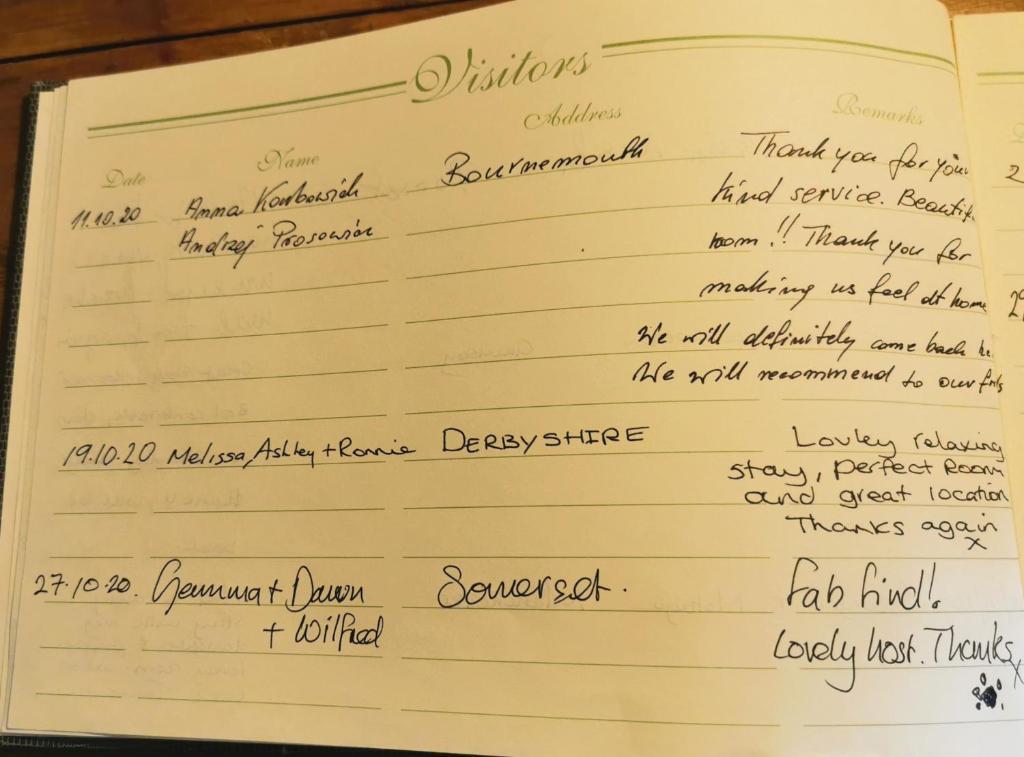 Visitors
Date Name Address Remarks
11.10.20 Anna Bournemouth Thank you for your
Andrzej kind service. Beautif
room!! Thank you for
making us feel at home
We will definitely come back he
We will recommend to our
19.10.20 Melissa, Ashley + Ronnie DERBYSHIRE Lovley relaxing
stay, perfect Room
and great location
Thanks again
x
27.10.20. Gemma + Dawn Somerset. Fab find!
+ Wilfred Lovely host. Thanks
x